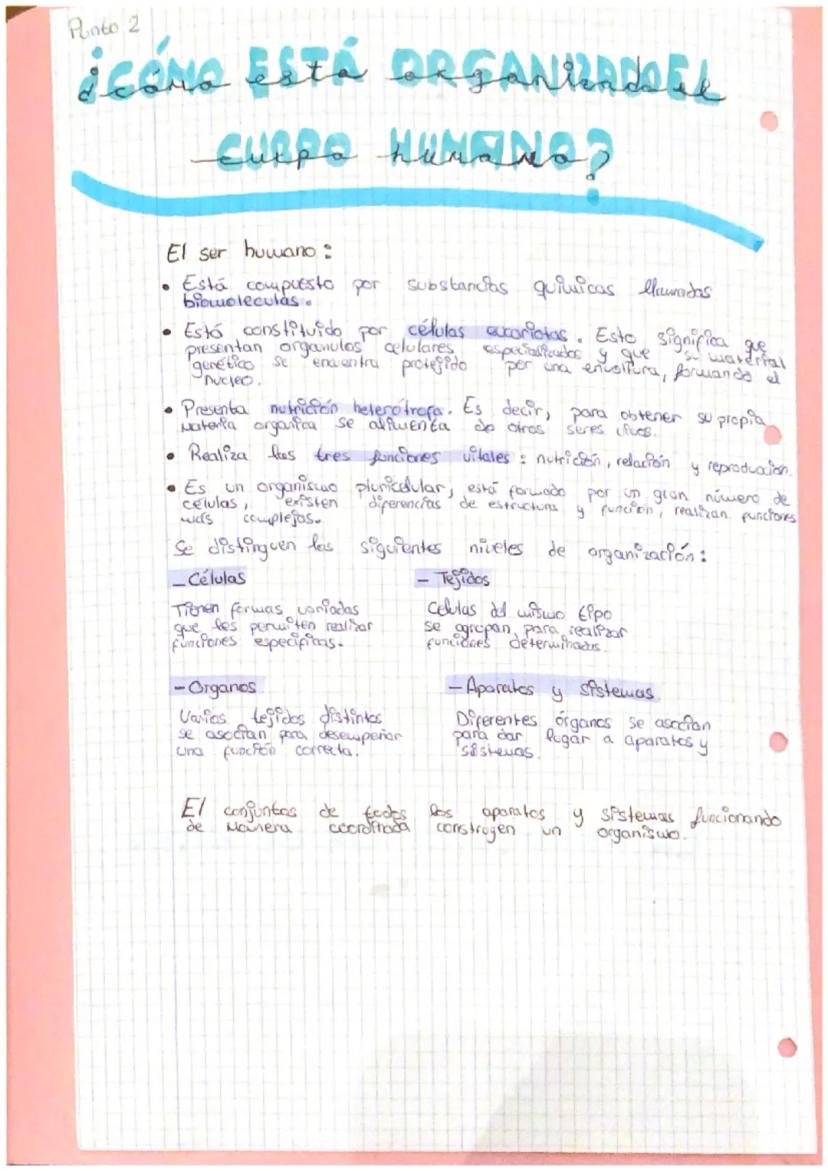 Punto 2
¿CÓMO ESTÁ ORGANIZADO EL
CURPO HUMANO?
El ser humano:
• Está compuesto por substancias químicas llamadas
biomoleculas.
• Está constituido por células eucariotas. Esto significa que
presentan organulos celulares especializados y que su material
genético se encuentra protejido por una envoltura, formando el
nucleo.
• Presenta nutrición heterótrofa. Es decir, para obtener su propia
materia organica se alimenta de otros seres vivos.
• Realiza las tres funciones vitales: nutrición, relación y reproducción.
• Es un organismo pluricelular, está formado por un gran número de
células, existen diferencias de estructura y función, realizan funciones
más complejas.
Se distinguen los siguientes niveles de organización:
- Células
- Tejidos
Tienen formas variadas
que les permiten realizar
funciones especificas.
Celulas del mismo tipo
se agrupan para realizar
funciones determinadas.
- Organos
- Aparatos y sistemas
Varios tejidos distintos
se asocian para desempeñar
una función correcta.
Diferentes órganos se asocian
para dar lugar a aparatos y
sistemas.
El conjuntos de todos los aparatos y sistemas funcionando
de manera coordinada construyen un organismo.